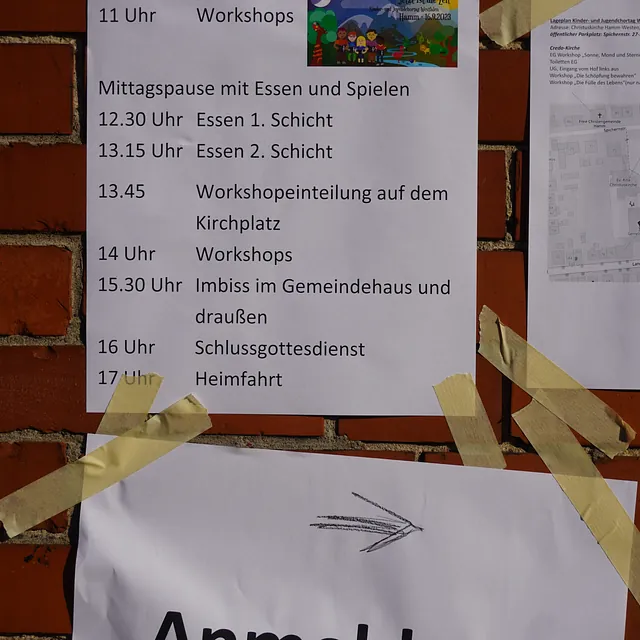 11 Uhr Workshops
Hamm - 16.9.2023
Mittagspause mit Essen und Spielen
12.30 Uhr Essen 1. Schicht
13.15 Uhr Essen 2. Schicht
13.45 Workshopeinteilung auf dem
Kirchplatz
14 Uhr Workshops
15.30 Uhr Imbiss im Gemeindehaus und
draußen
16 Uhr Schlussgottesdienst
17 Uhr Heimfahrt
Lageplan Kinder- und Jugendchortag
Adresse: Christuskirche Hamm-Westen,
öffentlicher Parkplatz: Spichernstr. 27-
Credo-Kirche
EG Workshop „Sonne, Mond und
Toiletten EG
UG, Eingang vom Hof links aus
Workshop „Die Schöpfung bewahren"
Workshop „Die Fülle des Lebens"